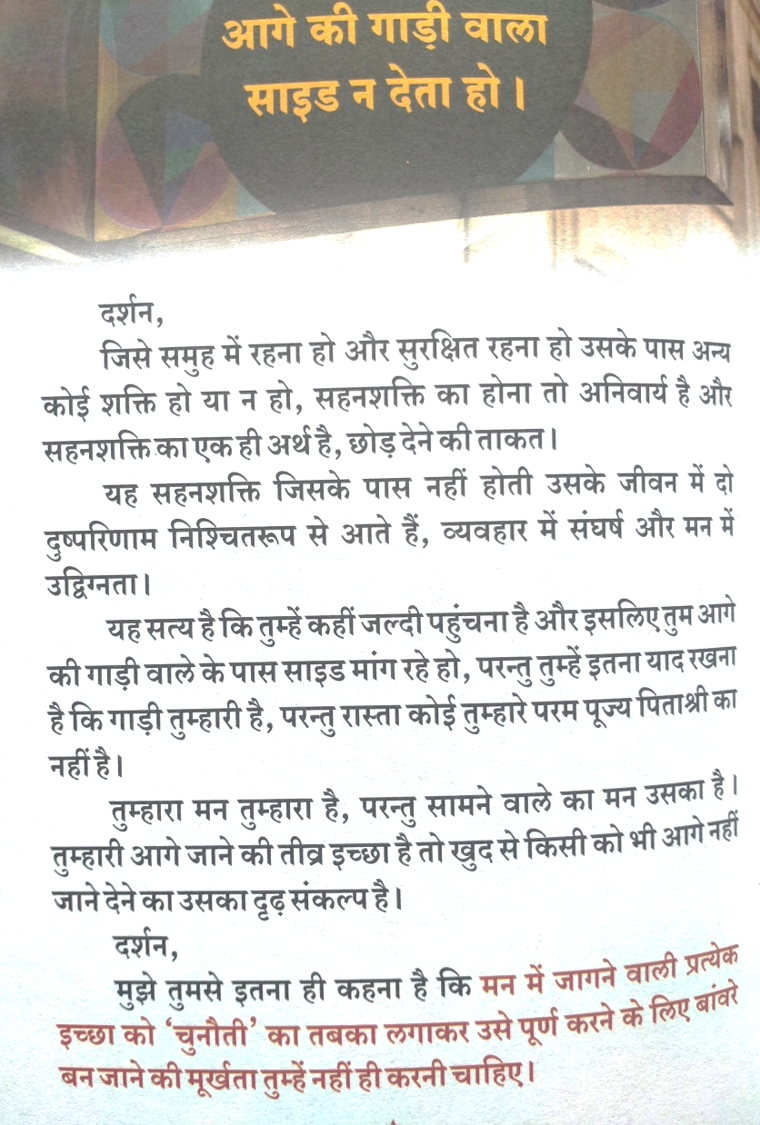 आगे की गाड़ी वाला
साइड न देता हो।
दर्शन,
जिसे समुह में रहना हो और सुरक्षित रहना हो उसके पास अन्य
कोई शक्ति हो या न हो, सहनशक्ति का होना तो अनिवार्य है और
सहनशक्ति का एक ही अर्थ है, छोड़ देने की ताकत।
यह सहनशक्ति जिसके पास नहीं होती उसके जीवन में दो
दुष्परिणाम निश्चितरूप से आते हैं, व्यवहार में संघर्ष और मन में
उद्विग्नता।
यह सत्य है कि तुम्हें कहीं जल्दी पहुंचना है और इसलिए तुम आगे
की गाड़ी वाले के पास साइड मांग रहे हो, परन्तु तुम्हें इतना याद रखना
है कि गाड़ी तुम्हारी है, परन्तु रास्ता कोई तुम्हारे परम पूज्य पिताश्री का
नहीं है।
तुम्हारा मन तुम्हारा है, परन्तु सामने वाले का मन उसका है।
तुम्हारी आगे जाने की तीव्र इच्छा है तो खुद से किसी को भी आगे नहीं
जाने देने का उसका दृढ़ संकल्प है।
दर्शन,
मुझे तुमसे इतना ही कहना है कि मन में जागने वाली प्रत्येक
इच्छा को ‘चुनौती’ का तबका लगाकर उसे पूर्ण करने के लिए बांवरे
बन जाने की मूर्खता तुम्हें नहीं ही करनी चाहिए।